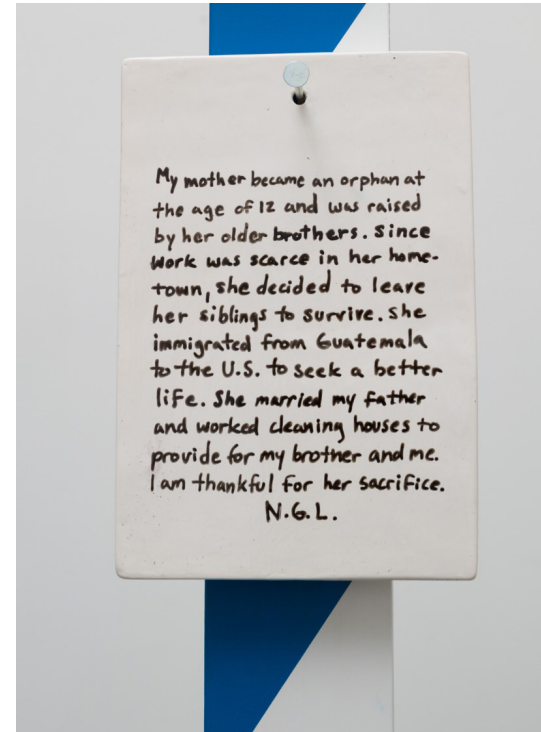 My mother became an orphan at
the age of 12 and was raised
by her older brothers. Since
work was scarce in her home-
town, she decided to leave
her siblings to survive. She
immigrated from Guatemala
to the U.S. to seek a better
life. She married my father
and worked cleaning houses to
provide for my brother and me.
I am thankful for her sacrifice.
N.G.L.